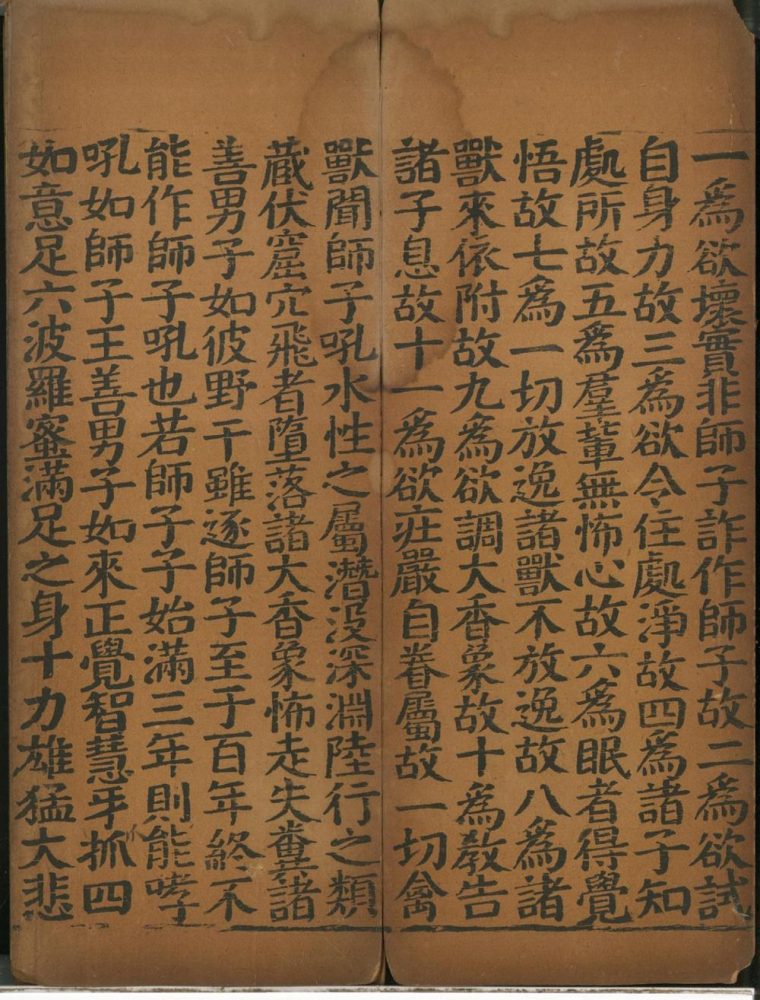 一爲欲壞實非師子詐作師子故二爲欲試
自身力故三爲欲令住處淨故四爲諸子知
處所故五爲羣輩無怖心故六爲眠者得覺
悟故七爲一切放逸諸獸不放逸故八爲諸
獸來依附故九爲欲調大香象故十爲教告
諸子息故十一爲欲庄嚴自眷屬故一切禽
獸聞師子吼水性之屬潛沒深淵陸行之類
藏伏窟穴飛者墮落諸大香象怖走失糞諸
善男子如彼野干雖逐師子至于百年終不
能作師子吼也若師子子始滿三年則能哮
吼如師子王善男子如來正覺智慧牙抓四
如意足六波羅蜜滿足之身十力雄猛大悲